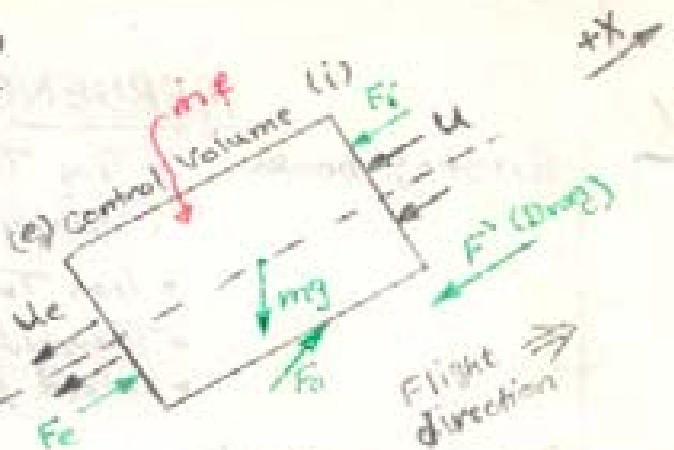 +X
ṁf
(i)
Fi
u
(e) Control Volume
F' (Drag)
mg
ue
Flight
direction
Fe